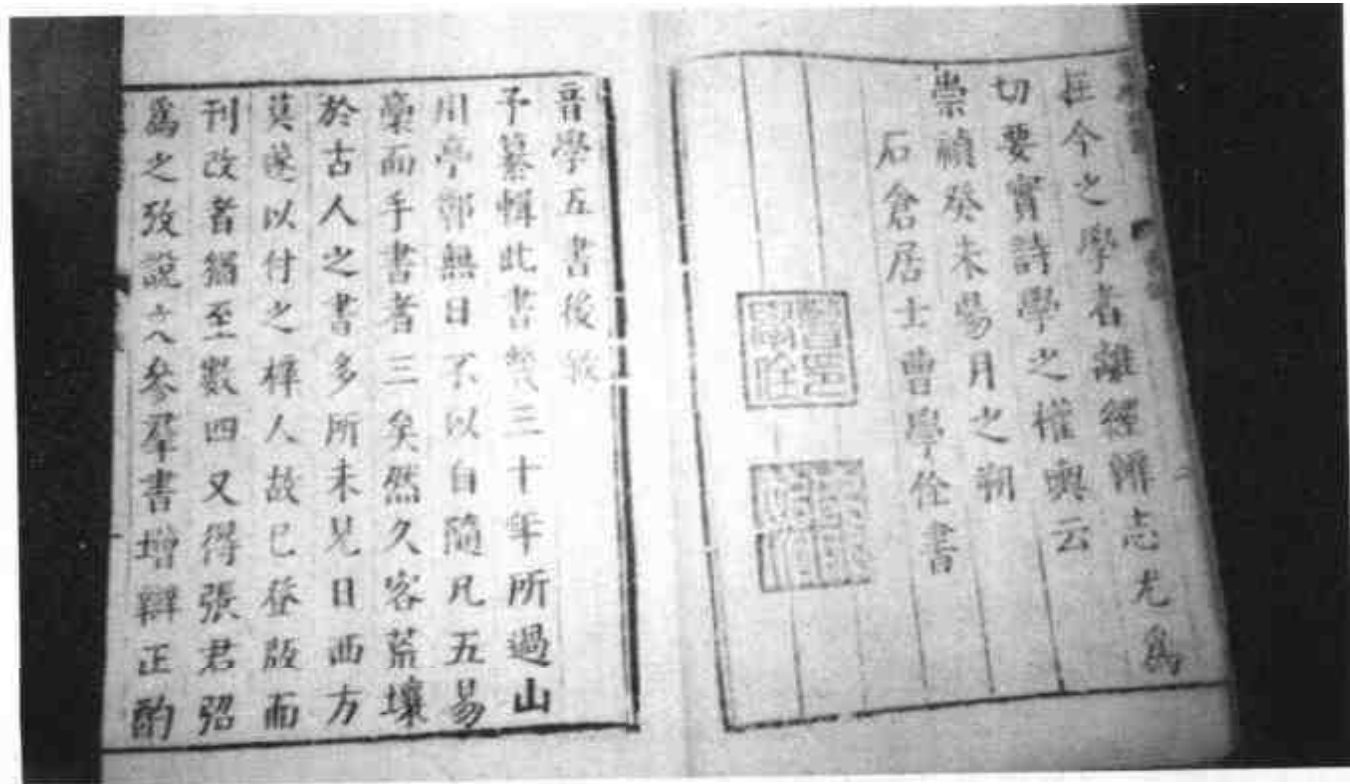 在今之學者離經辨志尤爲
切要實詩學之權輿云
崇禎癸未陽月之朔
石倉居士曹學佺書
音學五書後敘
予纂輯此書幾三十年所過山
川亭鄣無日不以自隨凡五易
稾而手書者三矣然久客荒壤
於古人之書多所未見日西方
莫遂以付之梓人故已登版而
刊改者猶至數四又得張君弨
爲之攷說文參羣書增辯正酌